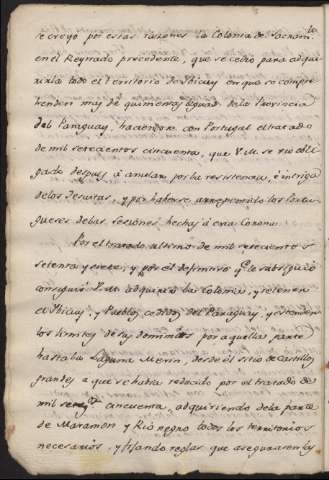 se creyó por estas razones la Colonia del Sacram.
en el Reynado precedente, que se cedio para adqui-
rirla todo el Territorio de Ibicuy en que se compre-
henden mas de quinientas leguas de la Provincia
del Paraguay, haciendose con Portugal el tratado
de mil setecientos cincuenta, que V.M. se vio obli-
gado despues á anular por la resistencia, é intriga
de los Jesuitas, y por haberse arrepentido los Portu-
gueses de las sesiones hechas á esta Corona.
Por el tratado ultimo de mil setecientos
setenta y siete, y por el definitivo q.e le subsiguió
consiguió V.M. adquirir la Colonia, y retener
el Ibicuy, y Pueblos cedidos del Paraguay, y estender
los limites de sus dominios por aquella parte
hasta la Laguna Merin, desde el sitio de Castillos
grandes a que se habia reducido por el tratado de
mil setez.s cincuenta, adquiriendo de la parte
de Marañon y Rio negro todos los territorios
necesarios, y fijando reglas que aseguraren las